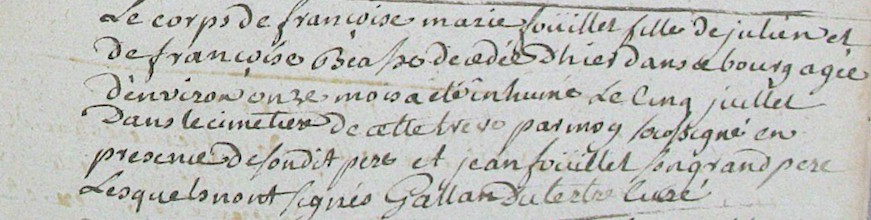 Le corps de françoise marie foüillet fille de julien et
de françoise Beasse decedée D'hier dans ce bourg agée
d'environ onze mois a été inhumé Le Cinq juillet
Dans le cimetiere de cette treve par moy soussigné en
presence de sondit pere et jean foüillet son grand pere
Lesquels nont signés Galland Du tertre Curé